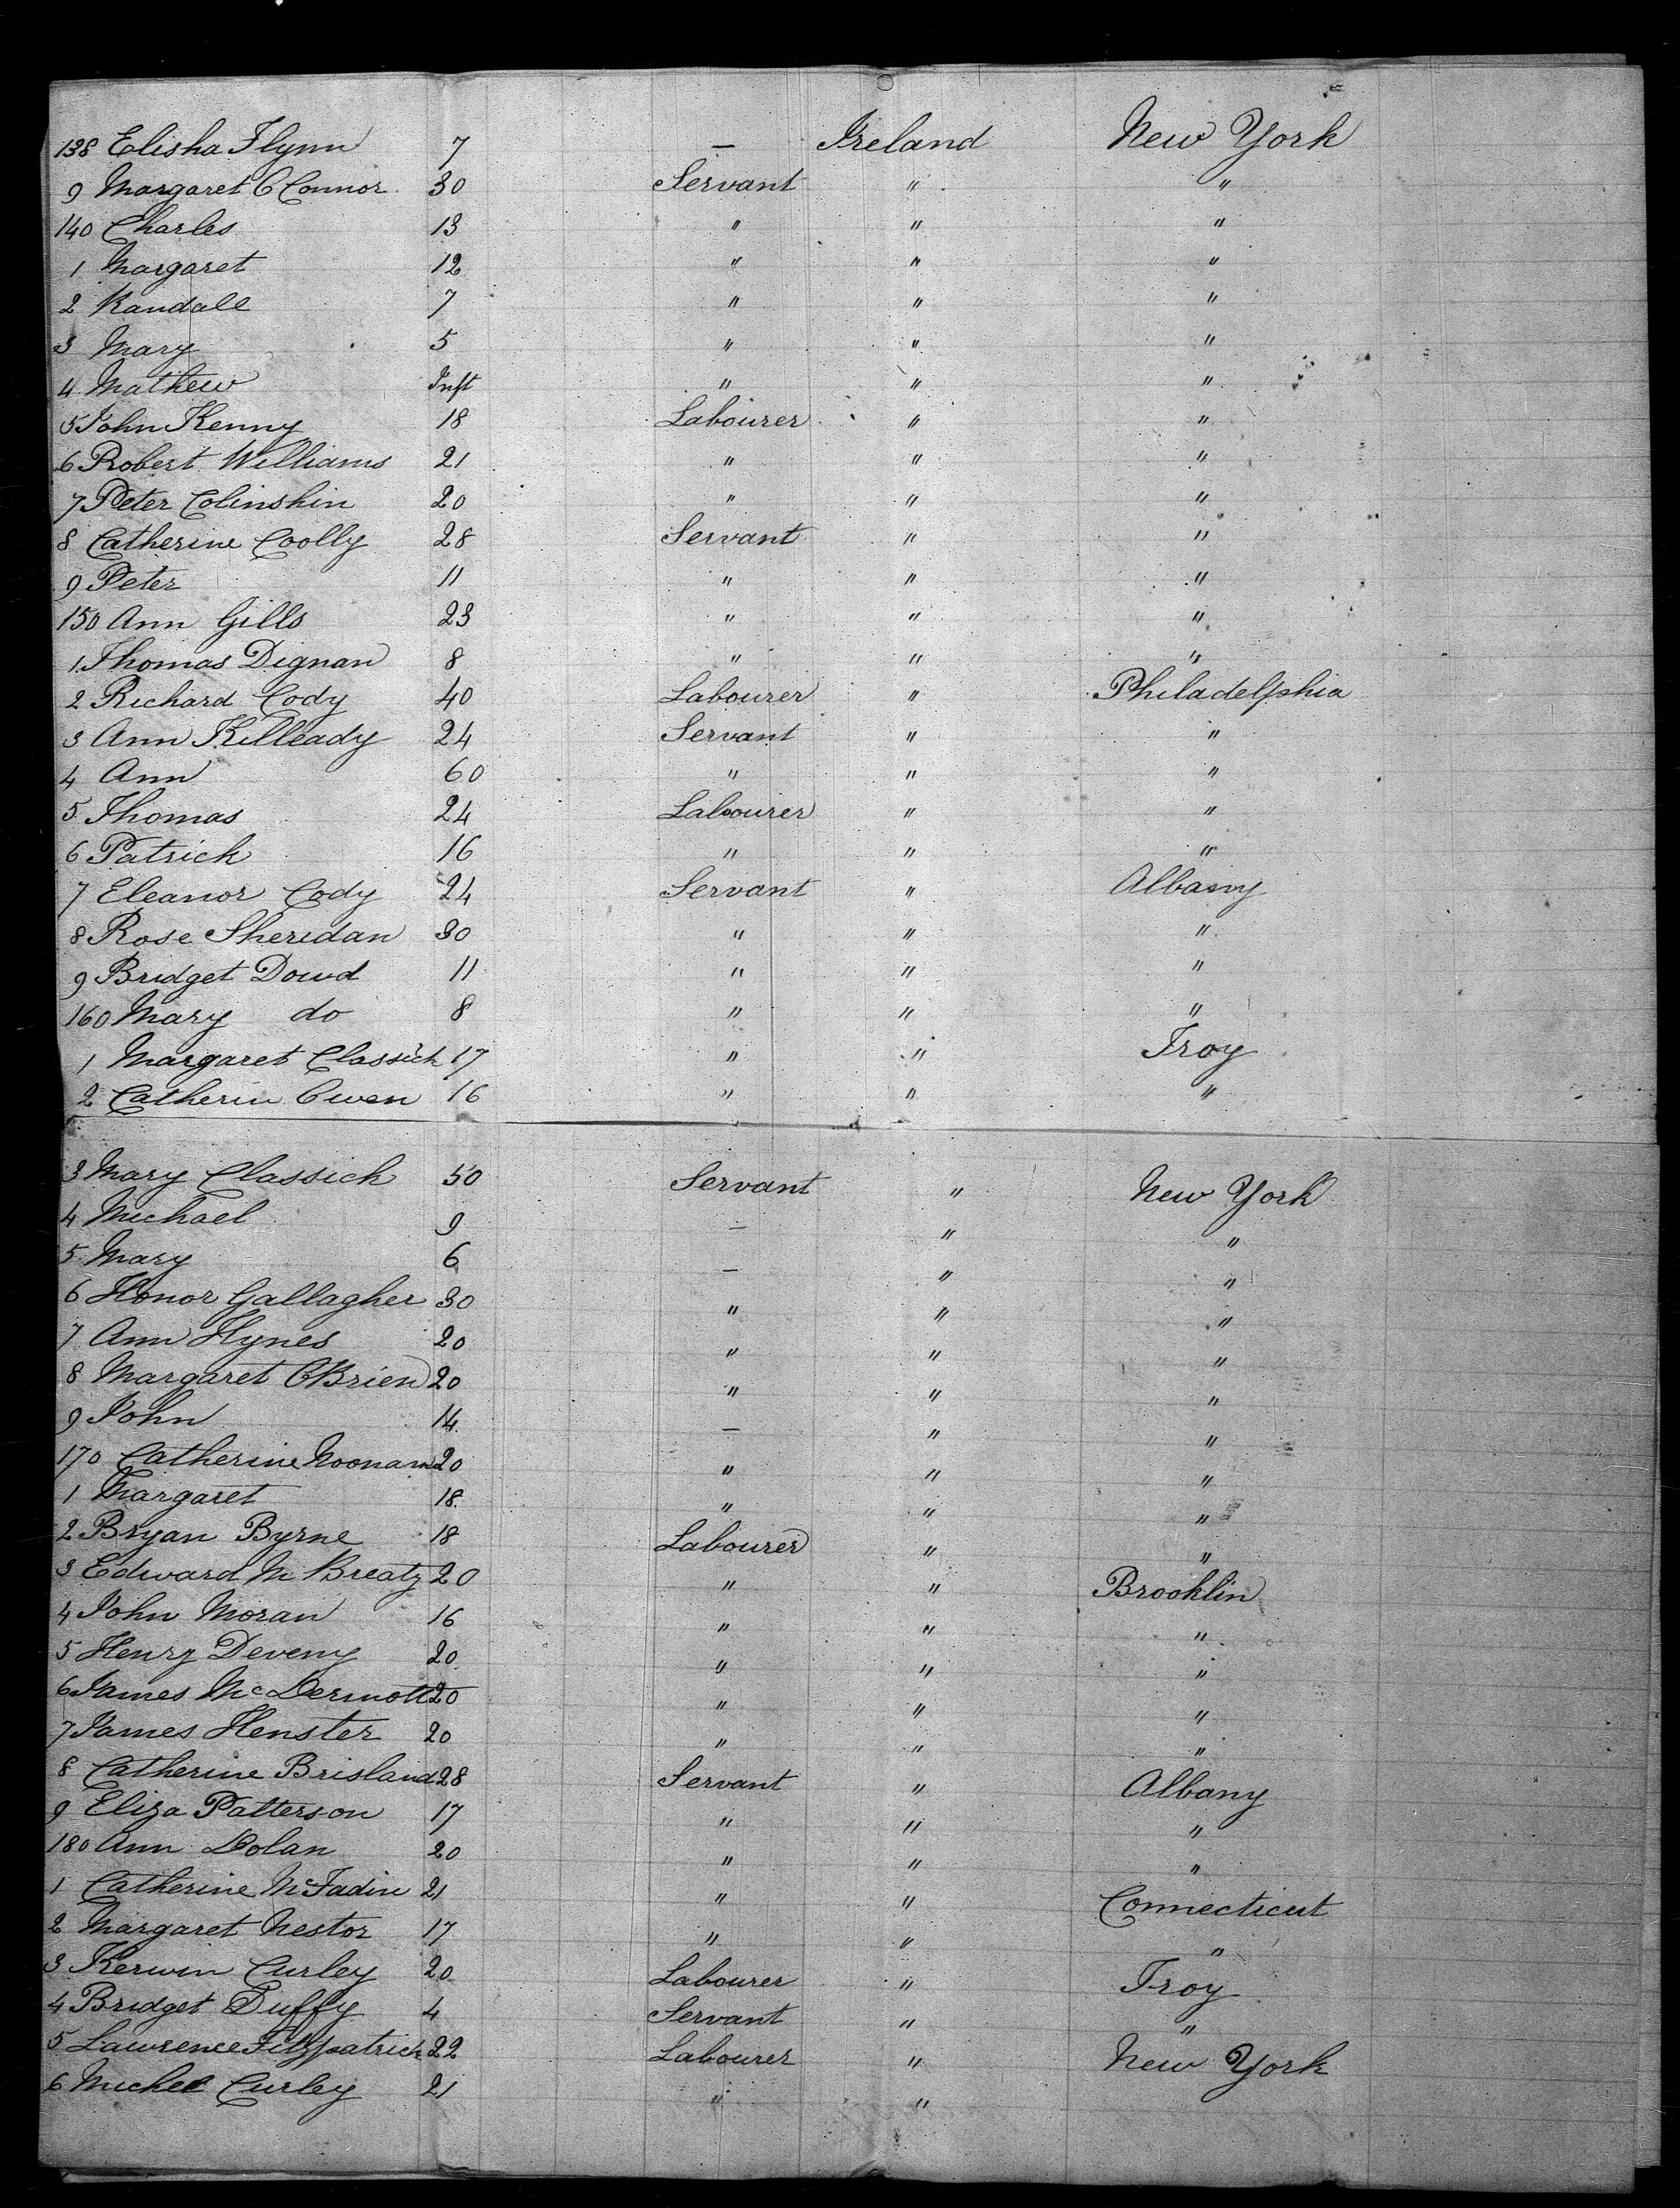 138 Elisha Flynn 7 — Ireland New York
9 Margaret O Connor 30 Servant " "
140 Charles 13 " " "
1 Margaret 12 " " "
2 Randall 7 " " "
3 Mary 5 " " "
4 Mathew Inft " " "
5 John Kenny 18 Labourer " "
6 Robert Williams 21 " " "
7 Peter Colinshin 20 " " "
8 Catherine Coolly 28 Servant " "
9 Peter 11 " " "
150 Ann Gills 23 " " "
1 Thomas Dignan 8 " " "
2 Richard Cody 40 Labourer " Philadelphia
3 Ann Killeady 24 Servant " "
4 Ann 60 " " "
5 Thomas 24 Labourer " "
6 Patrick 16 " " "
7 Eleanor Cody 24 Servant " Albany
8 Rose Sheridan 30 " " "
9 Bridget Dowd 11 " " "
160 Mary do 8 " " "
1 Margaret Classich 17 " " Troy
2 Catherin Owen 16 " " "
3 Mary Classich 50 Servant " New York
4 Michael 9 — " "
5 Mary 6 — " "
6 Honor Gallagher 30 " " "
7 Ann Hynes 20 " " "
8 Margaret OBrien 20 " " "
9 John 14 — " "
170 Catherine Noonan 20 " " "
1 Margaret 18 " " "
2 Bryan Byrne 18 Labourer " "
3 Edward Mc Breaty 20 " " Brooklin
4 John Moran 16 " " "
5 Henry Deveny 20 " " "
6 James McDermott 20 " " "
7 James Henster 20 " " "
8 Catherine Brisland 28 Servant " Albany
9 Eliza Patterson 17 " " "
180 Ann Dolan 20 " " "
1 Catherine McFadin 21 " " Connecticut
2 Margaret Nestor 17 " " "
3 Kerwin Curley 20 Labourer " Troy
4 Bridget Duffy 4 Servant " "
5 Lawrence Fitzpatrick 22 Labourer " New York
6 Michel Curley 21 " "